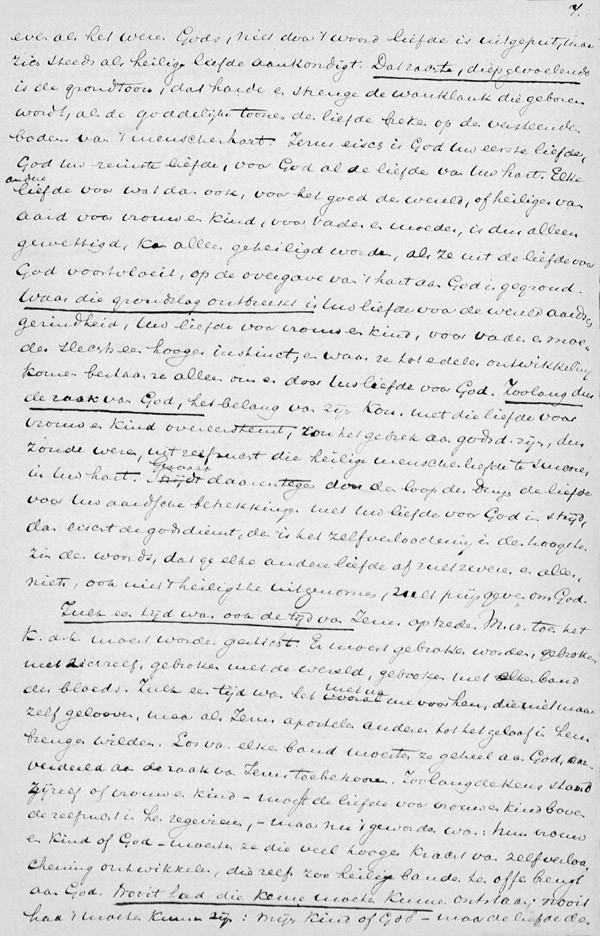 7.
even als het were Gods, niet door 't woord liefde is uitgeput, maar
zich steeds als heilige liefde aankondigt. Dat zachte, diep gevoelende
is de grondtoon, dat harde en strenge de wanklank die geboren
wordt, als de goddelijke toonen der liefde breken op de versteende
bodem van 't menschenhart. Jezus eischt is God Uw eerste liefde,
God Uw reinste liefde, voor God al de liefde van Uw hart. Elke
andere
liefde voor wat dan ook, voor het goed der wereld, of heiliger van
aard voor vrouw en kind, voor vader en moeder, is dan alleen
gewettigd, kan alleen geheiligd worden, als ze uit de liefde voor
God voortvloeit, op de overgave van 't hart aan God is gegrond.
Waar die grondslag ontbreekt is Uw liefde voor de wereld aardsch
gezindheid, Uw liefde voor vrouw en kind, voor vader en moe-
der slechts een hooger instinct, en waar ze tot edeler ontwikkeling
komen bestaan ze alleen om en door Uw liefde voor God. Zoolang dus
de zaak van God, het belang van zijn Kon. met die liefde voor
vrouw en kind overeenstemt, zou het gebrek aan godsd. zijn, dan
zonde were, uit zelfzucht die heilige menschenliefde te smoren,
in Uw hart. Geraakt daarentegen door den loop der dingen de liefde
voor Uw aardsche betrekkingen met Uw liefde voor God in strijd,
dan eischt de godsdienst, dan is het zelfverloochening in den hoogsten
zin des woords, dat ge elke andere liefde af zult zweren en alles,
niets, ook niet 't heiligste uitgenomen, zult prijsgeven om God.
Zulk een tijd was ook de tijd van Jezus optreden. M. a. toen het
K. d. h. moest worden gesticht. Er moest gebroken worden, gebroken
met zichzelf, gebroken met de wereld, gebroken met elken band
des bloeds. Zulk een tijd was het met name voor hen, die niet maar
zelf gelooven, maar als Jezus apostelen anderen tot het geloof in hem
brengen wilden. Los van elken band moesten ze geheel aan God,
aan de zaak van Jezus toebehooren. Zoolang de keus stond
zijzelf of vrouw en kind – mocht de liefde voor vrouw en kind boven
de zelfzucht in hen zegevieren, – maar nu 't geworden was: hun vrouw
en kind of God – moesten ze die veel hooger kracht van zelfverloo-
chening ontwikkelen, die zelf zoo heilige banden ten offer brengt
aan God. Nooit had die keus moeten kunnen ontstaan; nooit
had 't moeten kunnen zijn: mijn kind of God – maar de liefde de